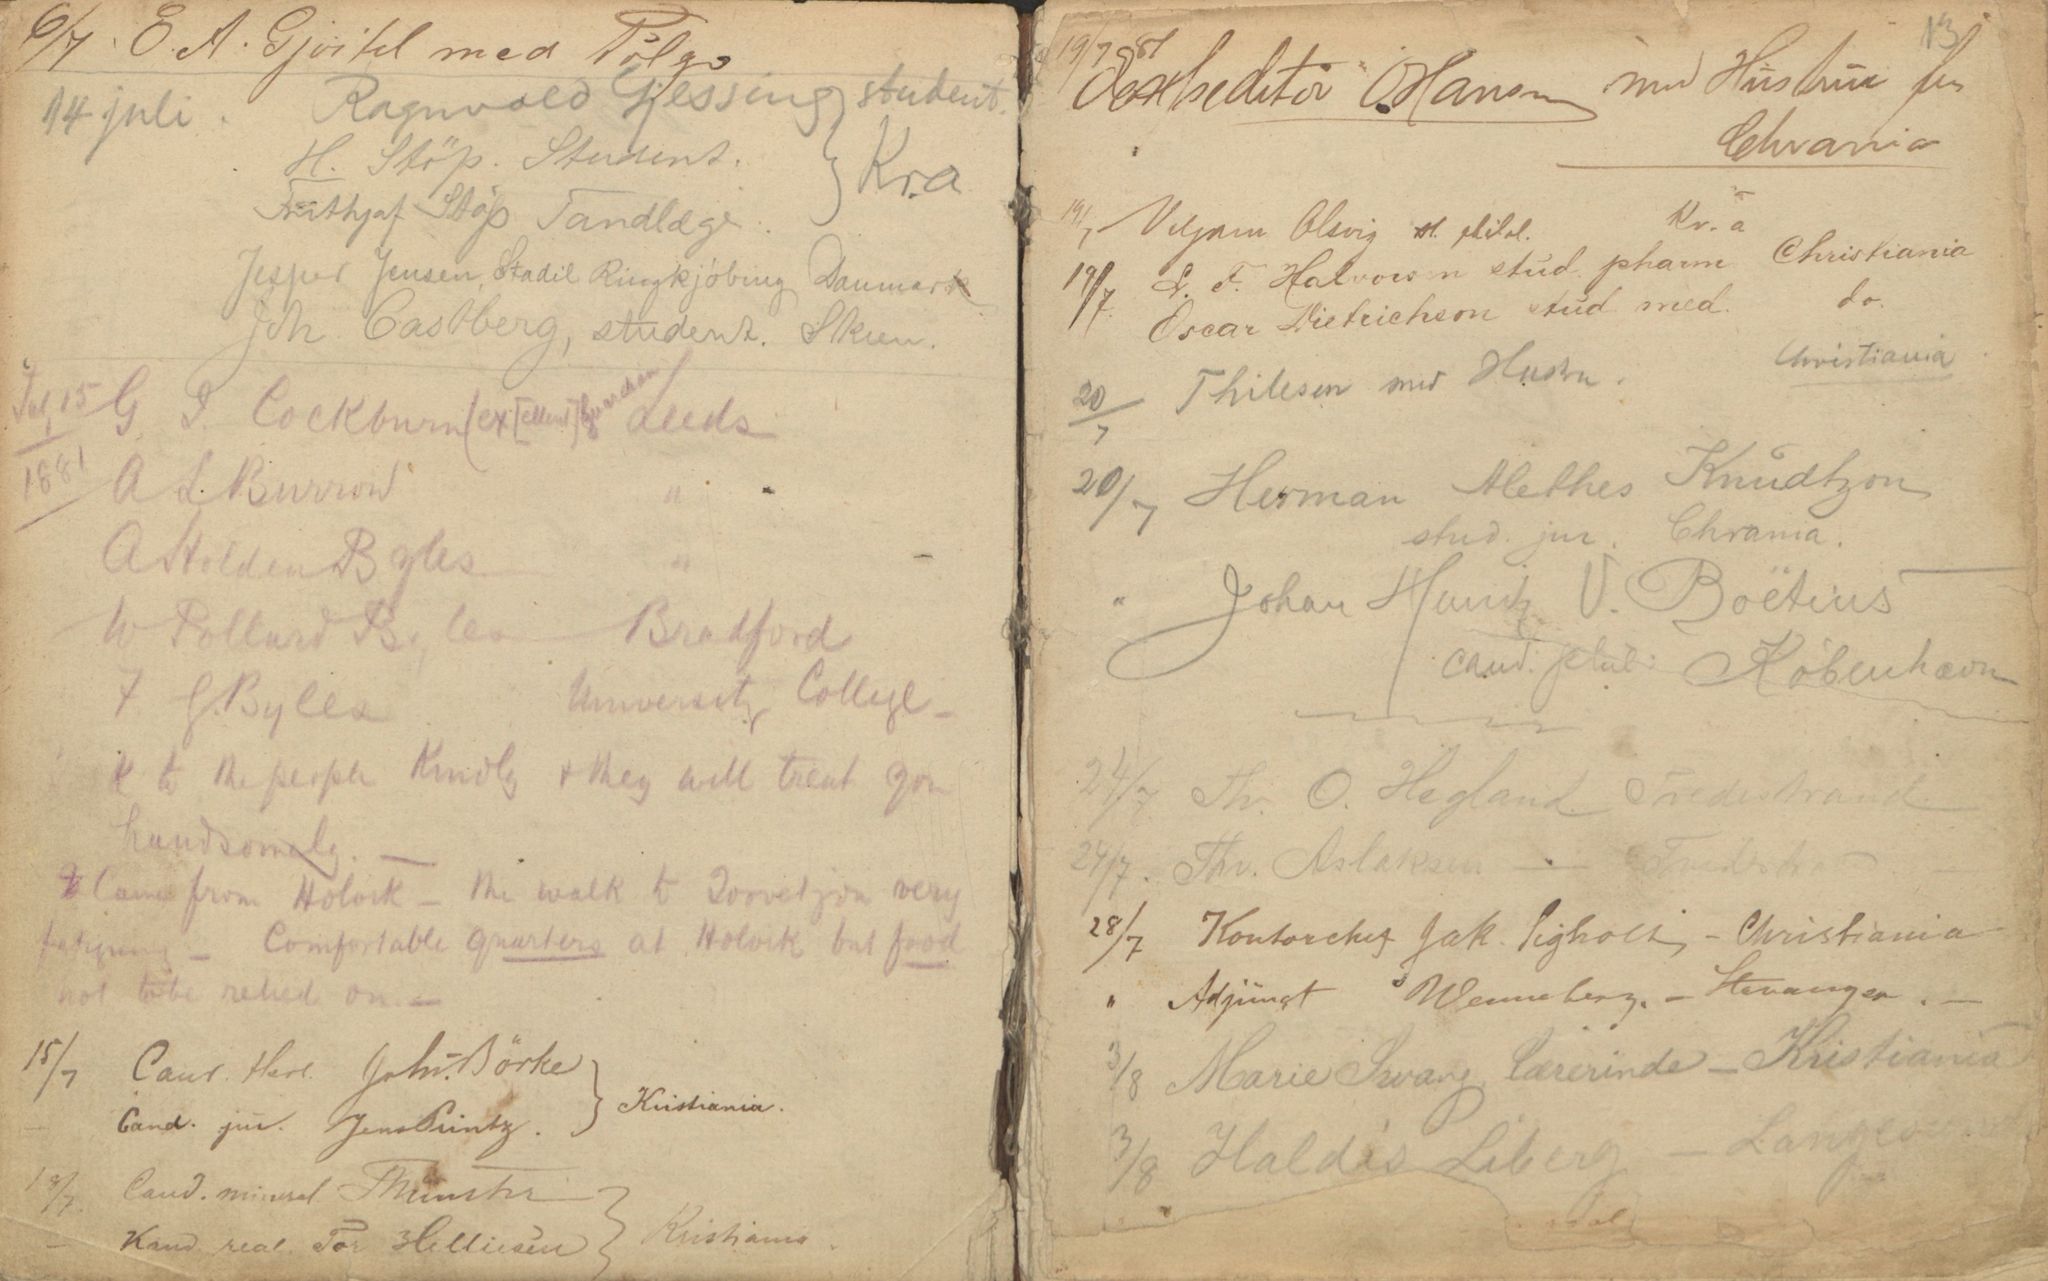 6/7. E. A. Gjvitel med Følge
14 juli. Ragnvald Gjessing student.
H. Støp. Student. Kr.a
Frithjof Støp Tandlæge.
Jesper Jensen, Stadil Ringkjöbing Danmark
Joh. Castberg, student. Skien.
Jul 15 G I. Cockburn Leeds
1881
A L. Burrow "
A Holden Byles "
W Pollard Byles Bradford
F. G. Byles University College
to the people Kindly & they will treat you
handsomely. —
Came from Holvik — the walk to very
fatiguing — Comfortable quarters at Holvik but food
not to be relied on. —
15/7 Cand. Joh. Börke
Kristiania.
— Cand. jur. Jens Printz.
18/7. Cand. mineral Th. Münster
— Kand. real. Tor Helliesen Kristiania.
13
19/7 81
Hansen med Hustru fra
Chrania
19/7 Viljam Olsvig st. philol. Kr.a
19/7. L. F. Halvorsen stud. pharm Christiania
Oscar Dietrichson stud. med. do.
20/7 Thilesen med Hustru. Christiania
20/7 Herman Alethes Knudtzon
stud. jur. Chrania.
" Johan V. Boëtius
cand. phil: Kóbenhavn
24/7 Th. O. Hegland Tvedestrand
24/7. Thv. Aslaksen —
28/7 Kontorchef Jak. Sigholt, — Christiania
" Adjunct Wenneberg. — Stavanger. —
3/8 Marie Svang, Lærerinde — Kristiania
3/8 Haldis Liberg — Langesund